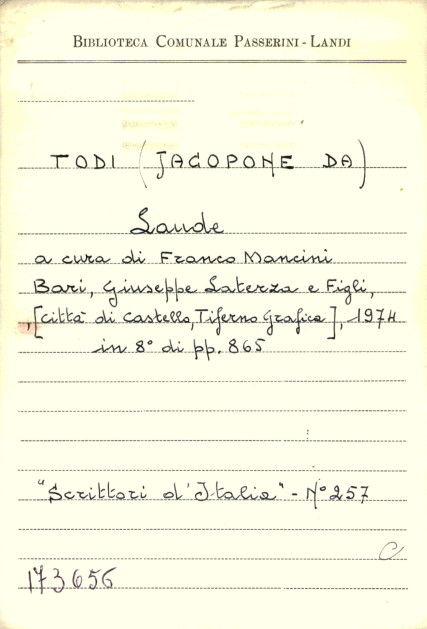 BIBLIOTECA COMUNALE PASSERINI - LANDI
TODI (JACOPONE DA)
Laude
a cura di Franco Mancini
Bari, Giuseppe Laterza e Figli,
,[città di Castello, Tiferno Grafica], 1974
in 8° di pp. 865
"Scrittori d'Italia" - N° 257
C
173656